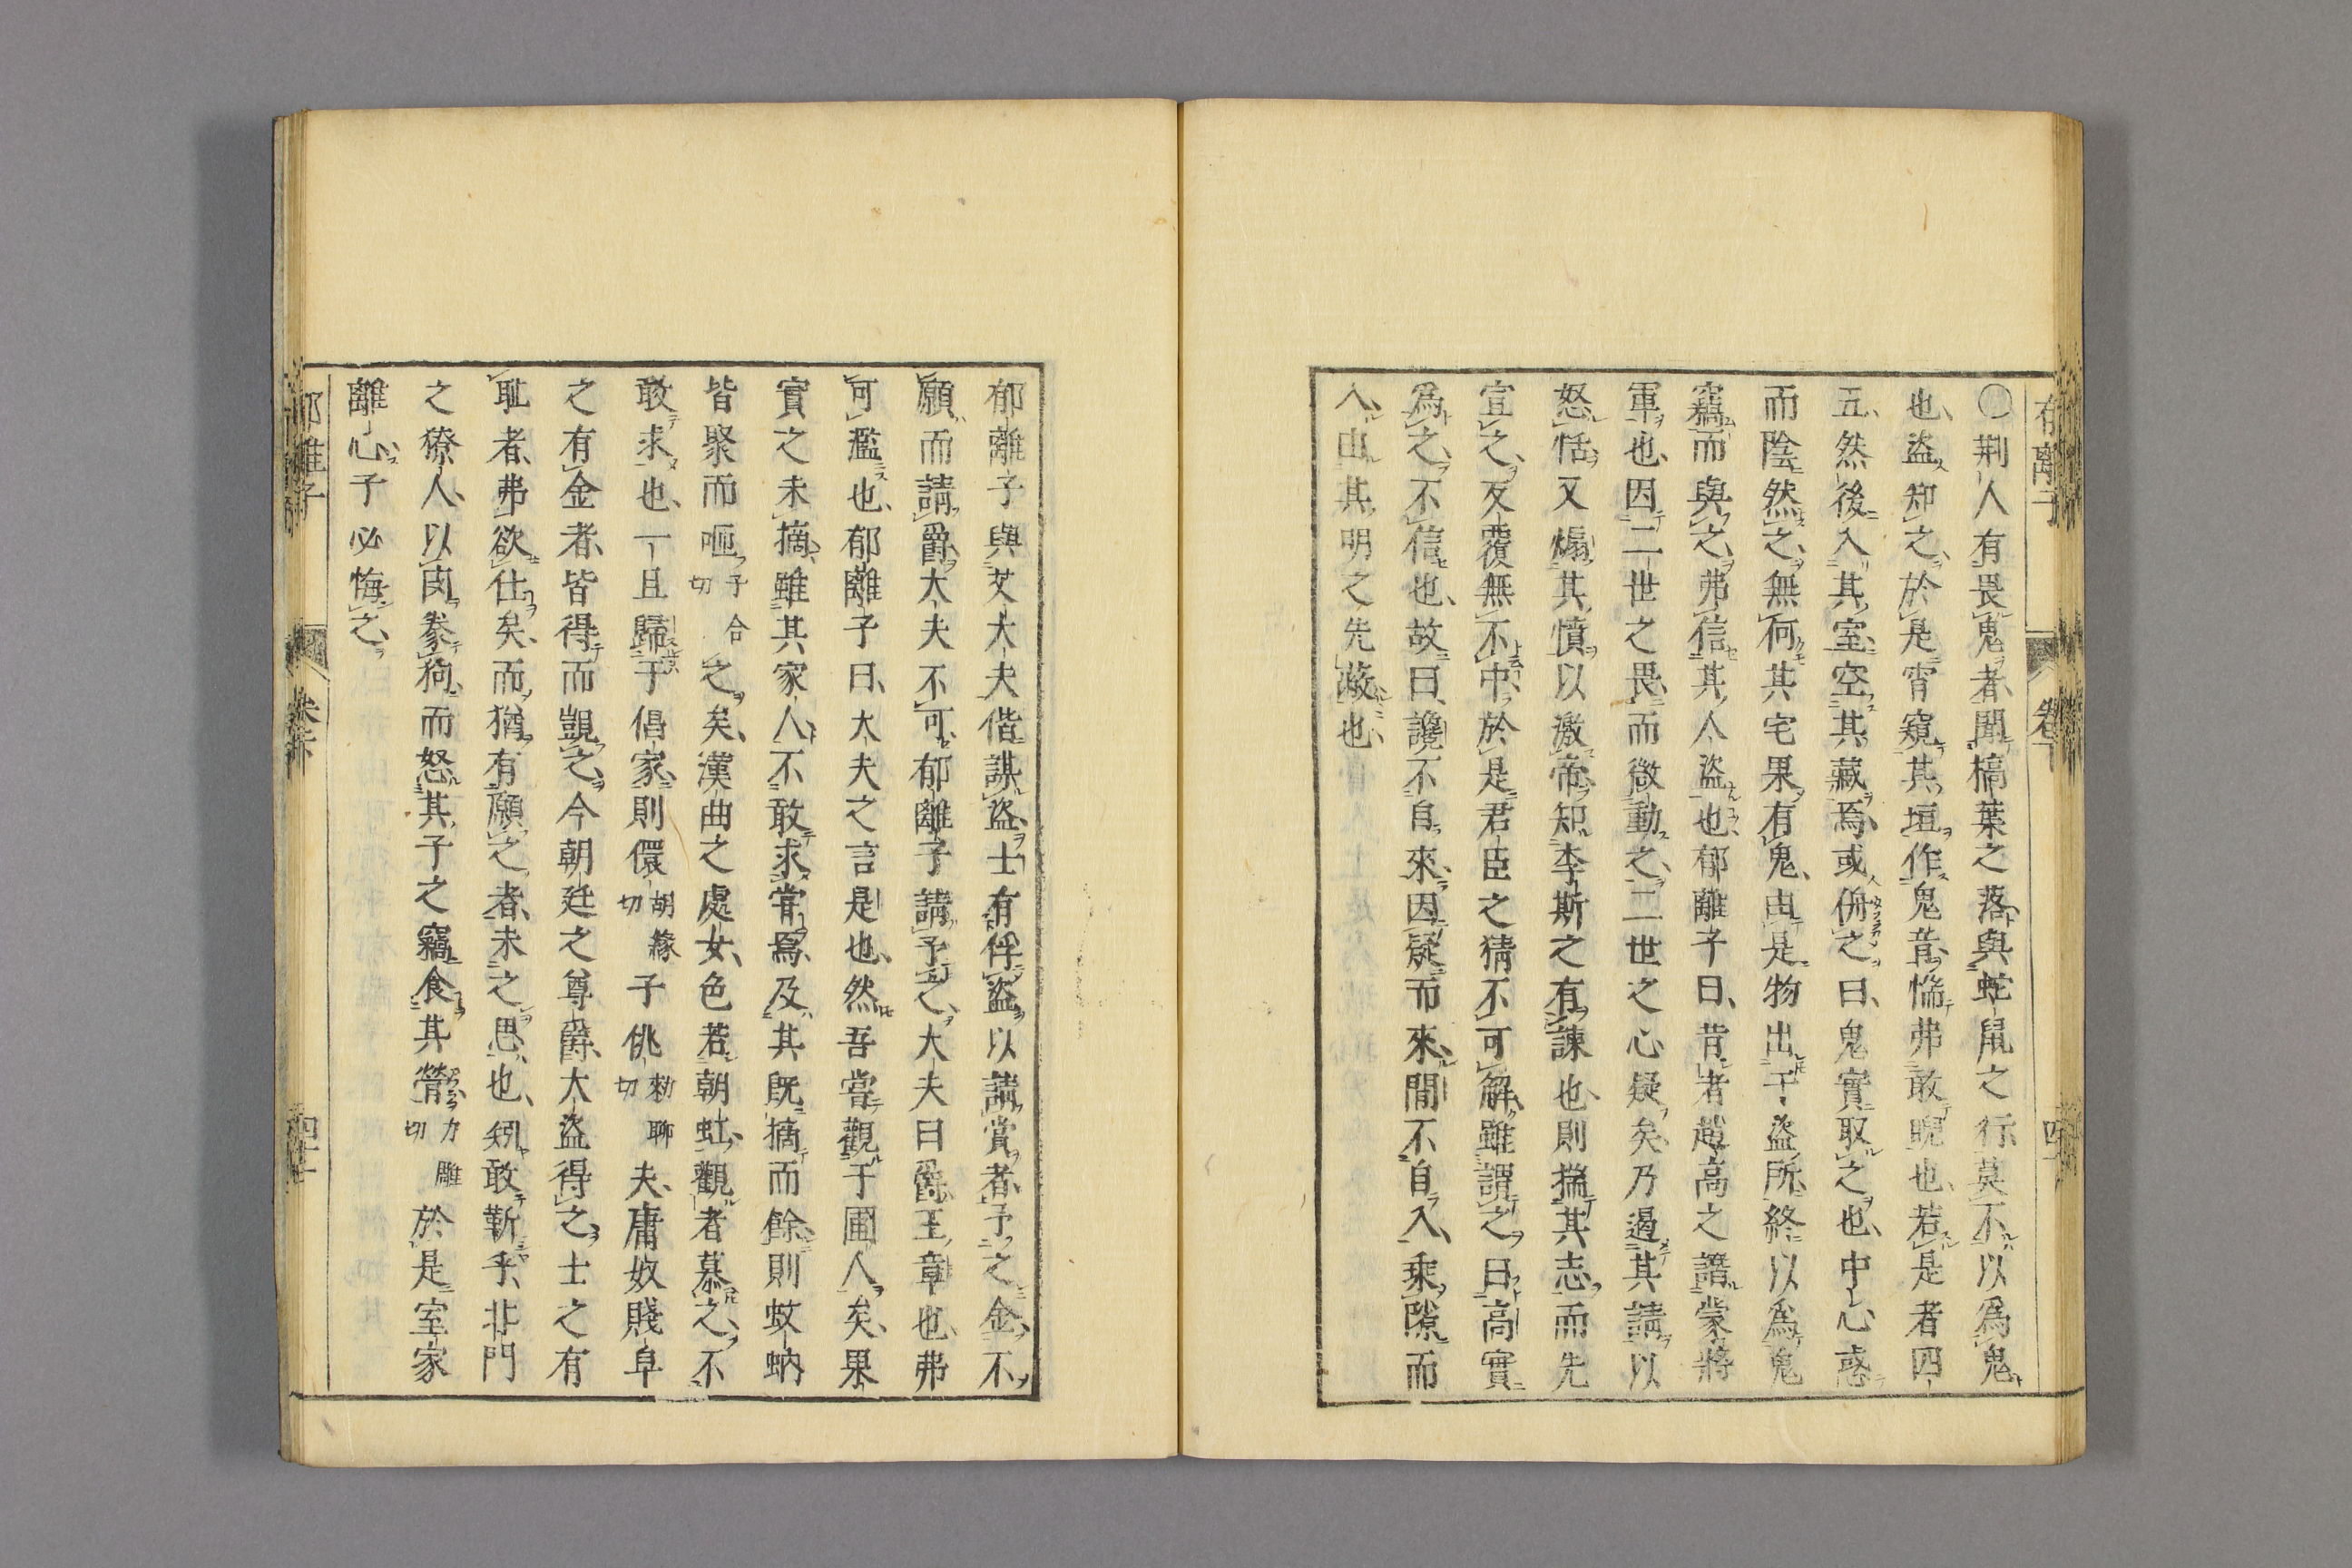 〇荆人有畏鬼者聞槁葉之落與蛇鼠之行莫不以為鬼
也盗知之於是宵窺其垣作鬼音惴弗敢睨也若是者四
五然後入其室空其藏焉或侜之曰鬼實取之也中心惑
而陰然之無何其宅果有鬼由是物出于盗所終以為鬼
竊而與之弗信其人盗也郁離子曰昔者趙高之譖蒙將
軍也因二世之畏而微動之二世之心疑矣乃遏其請以
怒恬又煽其憤以激帝知李斯之有諫也則揣其志而先
宣之反覆無不中於是君臣之猜不可解雖謂之曰高實
為之不信也故曰讒不自來因疑而來間不自入乘隙而
入由其明之先蔽也
郁離子與艾大夫偕謀盗士有俘盗以請賞者予之金不
願而請爵大夫不可郁離子請予之大夫曰爵王章也弗
可濫也郁離子曰大夫之言是也然吾嘗觀于圃人矣果
實之未摘雖其家人不敢求嘗焉及其既摘而餘則蚊蚋
皆聚而咂子合切之矣漢曲之處女色若朝虹觀者慕之不
敢求也一且歸于倡家則儇胡緣切子佻勑聊切夫庸奴賤皁
之有金者皆得而覬之今朝廷之尊爵大盗得之士之有
耻者弗欲仕矣而猶有願之者未之思也矧敢靳乎北門
之獠人以肉豢狗而怒其子之竊食其膋力雕切於是室家
離心子必悔之
郁離子
卷下